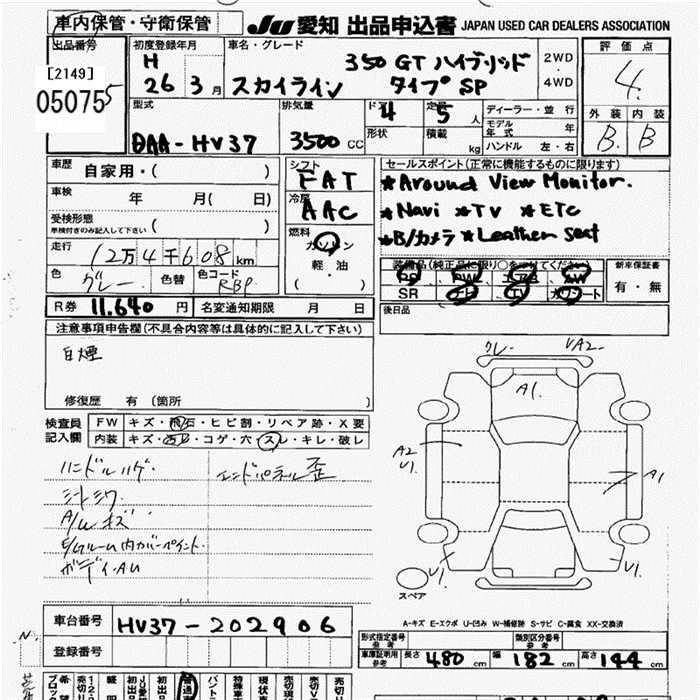 車内保管・守衛保管
JU 愛知 出品申込書 JAPAN USED CAR DEALERS ASSOCIATION
出品番号
[2149]
05075
5
初度登録年月
H
26 3月
車名・グレード
350 GT ハイブリッド
スカイライン タイプSP
2WD
4WD
評価点
4
外装 内装
B B
型式
DAA-HV37
排気量
3500 CC
ドア
4
形状
定員
5 人
積載
kg
ディーラー・並行
モデル年式 年
ハンドル 左・右
車歴 自家用・( )
車検 年 月(日)
受検形態
車検付きのみ記入して下さい ( )
走行 12万4千608km
色 グレー 色替 色コード RBP
シフト
FAT
冷房
AAC
燃料
ガソリン
軽・油
( )
セールスポイント(正常に機能するものに限ります)
*Around View Monitor.
*Navi *TV *ETC
*B/カメラ *Leather seat
装備品(純正品に限り○をつけてください)
PS PW エアB AW
SR ナビ TV カワシート
新車保証書
有・無
後日品
R券 11,640 円 名変通知期限 月 日
注意事項申告欄(不具合内容等は具体的に記入して下さい)
白煙
修復歴 有(箇所 )
検査員
記入欄
FW キズ・飛石・ヒビ割・リペア跡・X要
内装 キズ・汚レ・コゲ・穴・スレ・キレ・破レ
ハンドルハゲ エンドパネル歪
シートシワ
A/Wキズ
E/Gルーム内カバーペイント
ボディーAU
クレー VA2
A1
A2
U1
A1
U1
U1
スペア
A-キズ E-エクボ U-凹み W-補修跡 S-サビ C-腐食 XX-交換済
車台番号 HV37-202906
登録番号
型式指定番号
参考
類別区分番号
参考
車庫証明用
参考
長さ 480 cm 幅 182 cm 高さ 144 cm